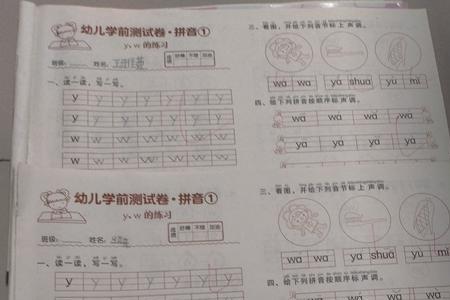 幼儿学前测试卷·拼音①
y、w 的练习
班级: 姓名:
成绩 好棒 不错 加油
一、读一读，写一写。
y y y y y y y
y y y y y y y
w w w w w w w
w w w w w w w
三、看图，并给下列音节标上声调。
wa wa ya shua yu mi
四、给下列拼音按顺序标声调。
wa wa wa wa
ya ya ya ya
幼儿学前测试卷·拼音①
y、w 的练习
班级: 姓名:
成绩 好棒 不错 加油
一、读一读，写一写。
y y y y y y y
三、看图，并给下列音节标上声调。
wa wa ya shua yu mi
四、给下列拼音按顺序标声调。
wa wa wa wa